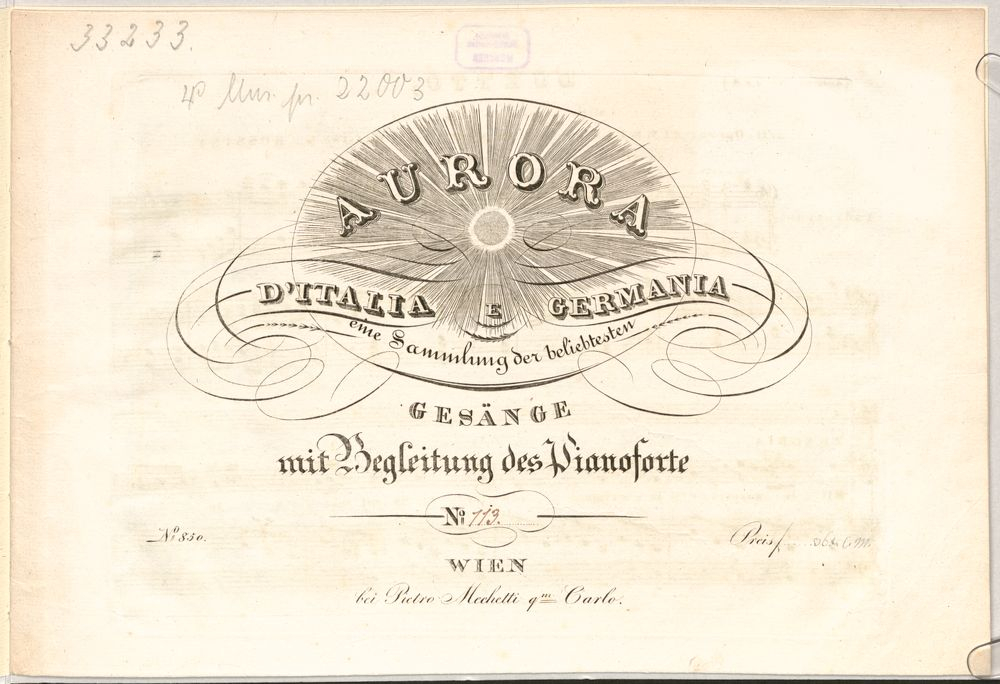 33233.
4° Mus. pr. 22003
AURORA
D'ITALIA E GERMANIA
eine Sammlung der beliebtesten
GESÄNGE
mit Begleitung des Pianoforte
No. 113.
No. 850.
Preis f
WIEN
bei Pietro Mechetti qm Carlo.